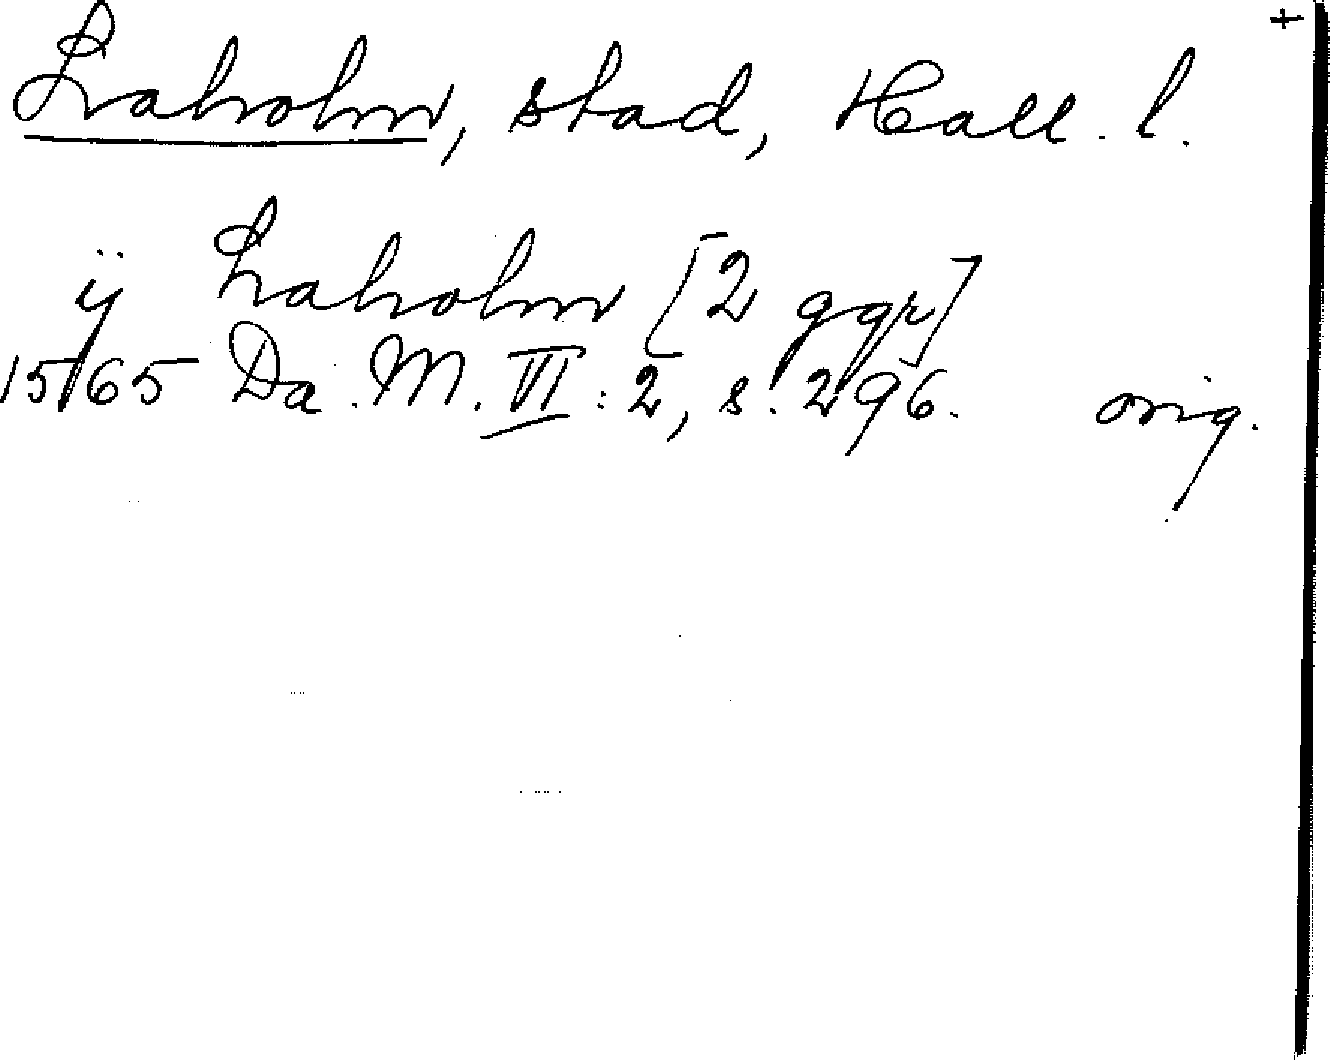 +
Laholm, stad, Hall. l.
ij Laholm [2 ggr]
1565 Da. M. VI: 2, s. 296. orig.